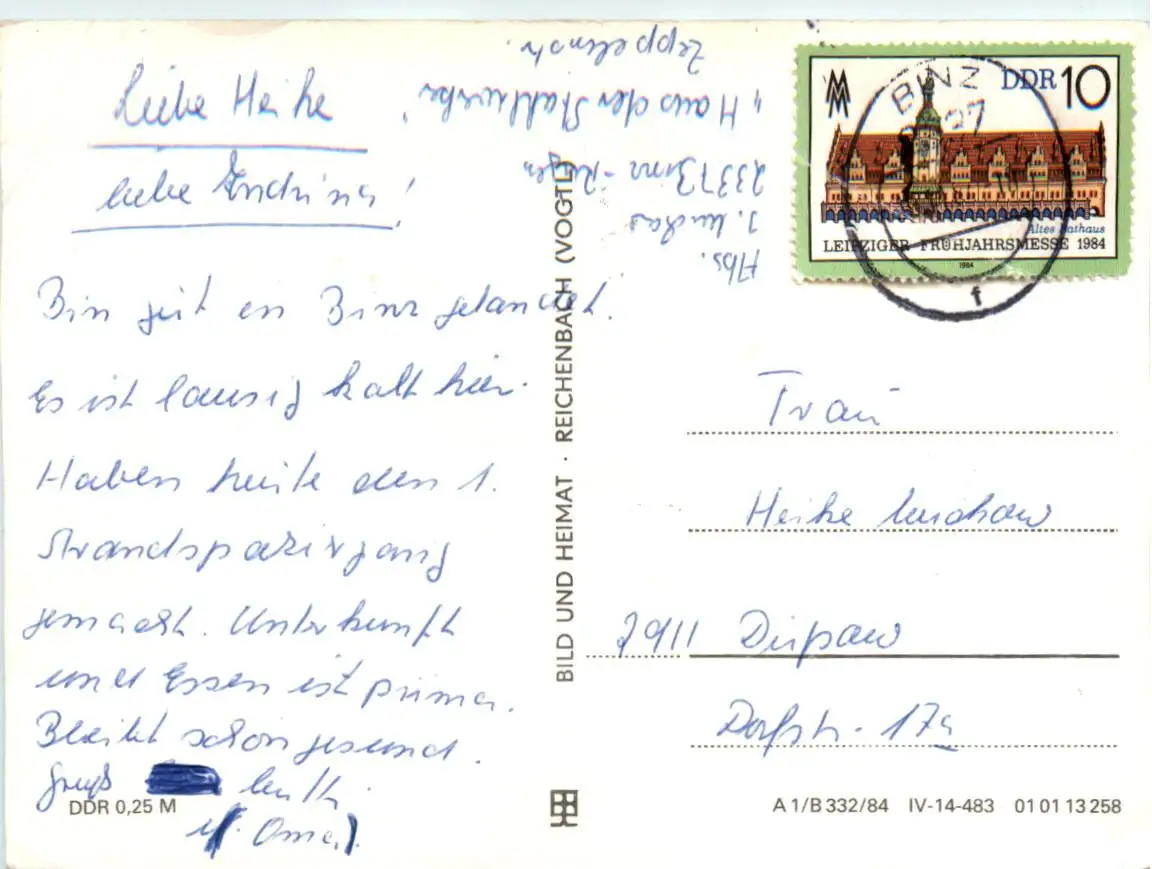 Liebe Heike
liebe Endrina!
Bin gut in Binz gelandet.
Es ist lausig kalt hier.
Haben heute den 1.
Strandspaziergang
gemacht. Unterkunft
und Essen ist prima.
Bleibt schön gesund.
Gruß Mutti
u. Oma
DDR 0,25 M
Abs.
2337 Binz - Rügen
"Haus der Stahlwerker"
Zeppelinstr.
BILD UND HEIMAT · REICHENBACH (VOGTL)
DDR 10
Altes Rathaus
LEIPZIGER FRÜHJAHRSMESSE 1984
1984
BINZ
27
f
Frau
Heike
2911
Dorfstr. 17a
A 1/B 332/84 IV-14-483 01 01 13 258